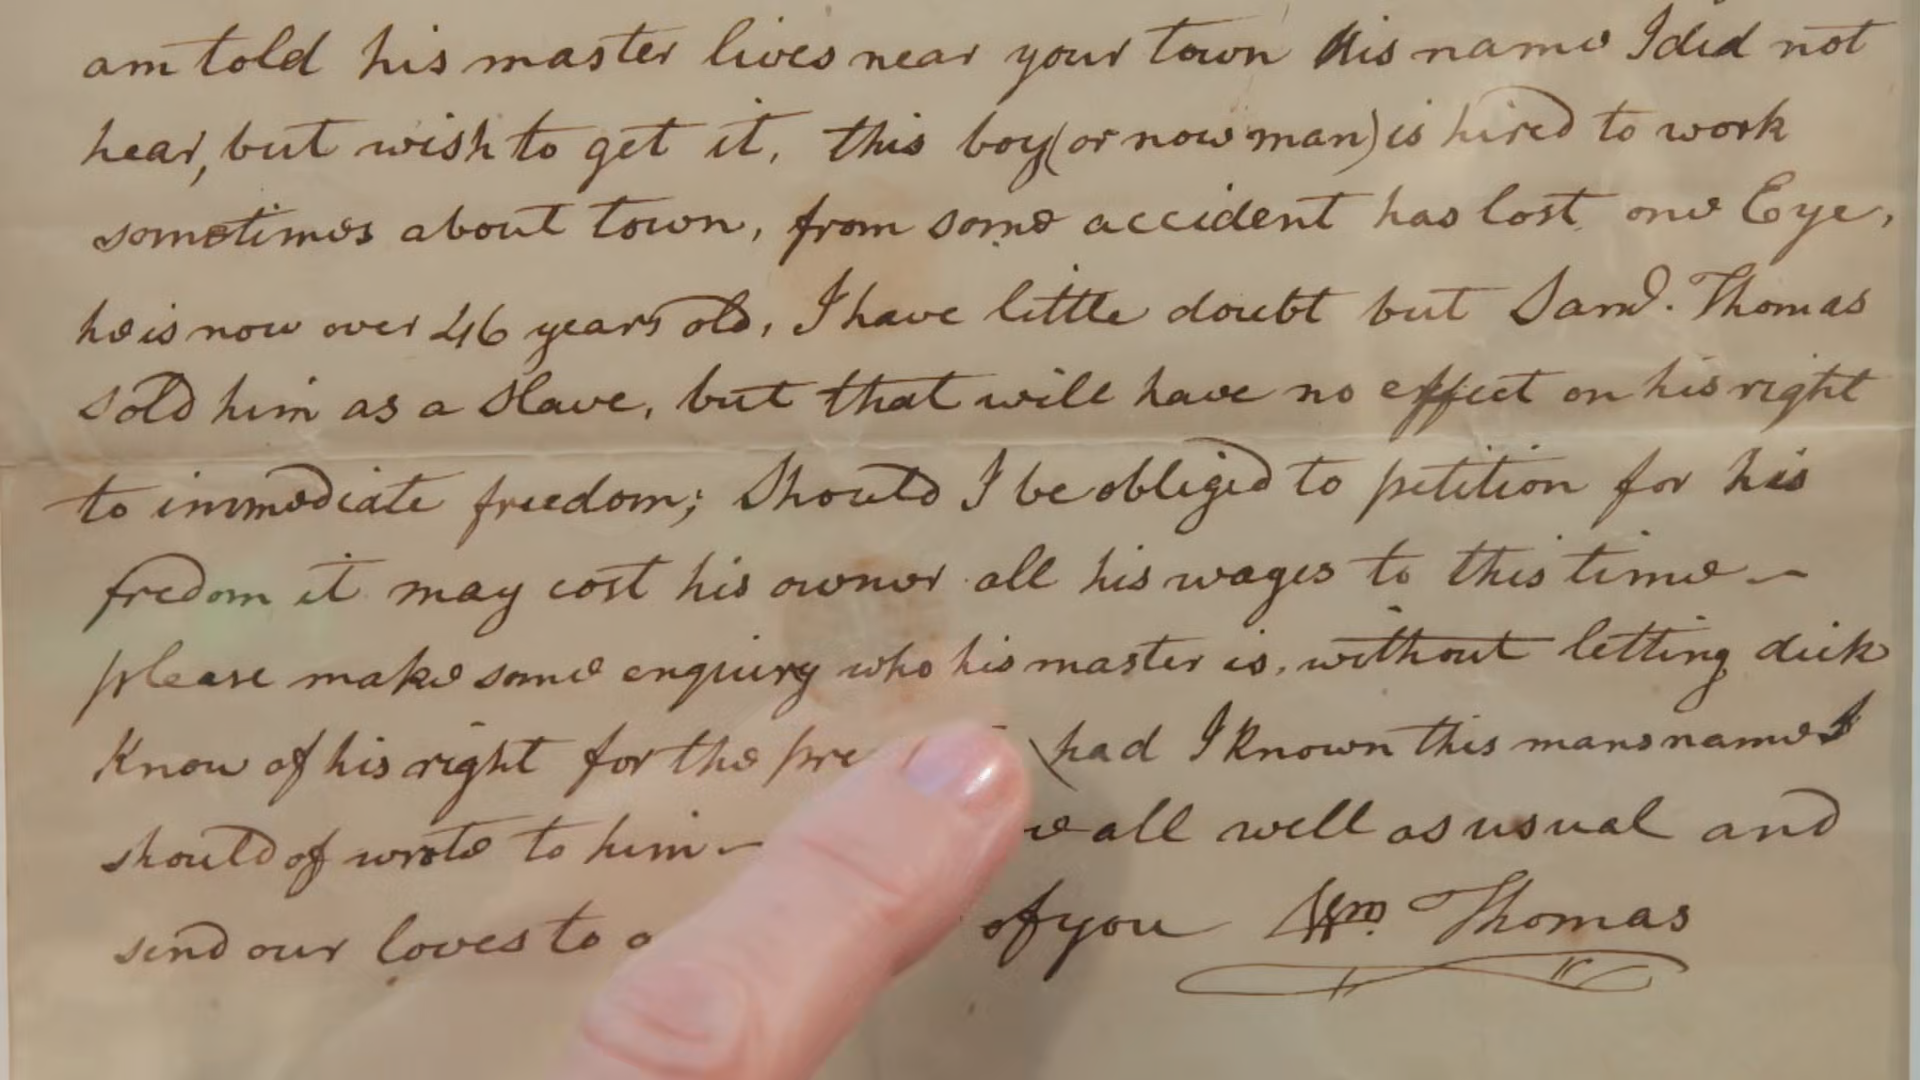 am told his master lives near your town his name I did not
hear, but wish to get it, this boy (or now man) is hired to work
sometimes about town, from some accident has lost one Eye,
he is now over 46 years old, I have little doubt but Saml. Thomas
sold him as a Slave, but that will have no effect on his right
to immediate freedom; Should I be obliged to petition for his
fredom it may cost his owner all his wages to this time —
please make some enquiry who his master is, without letting dick
Know of his right for the had I Known this mans name I
should of wrote to him — all well as usual and
send our loves to of you Wm. Thomas